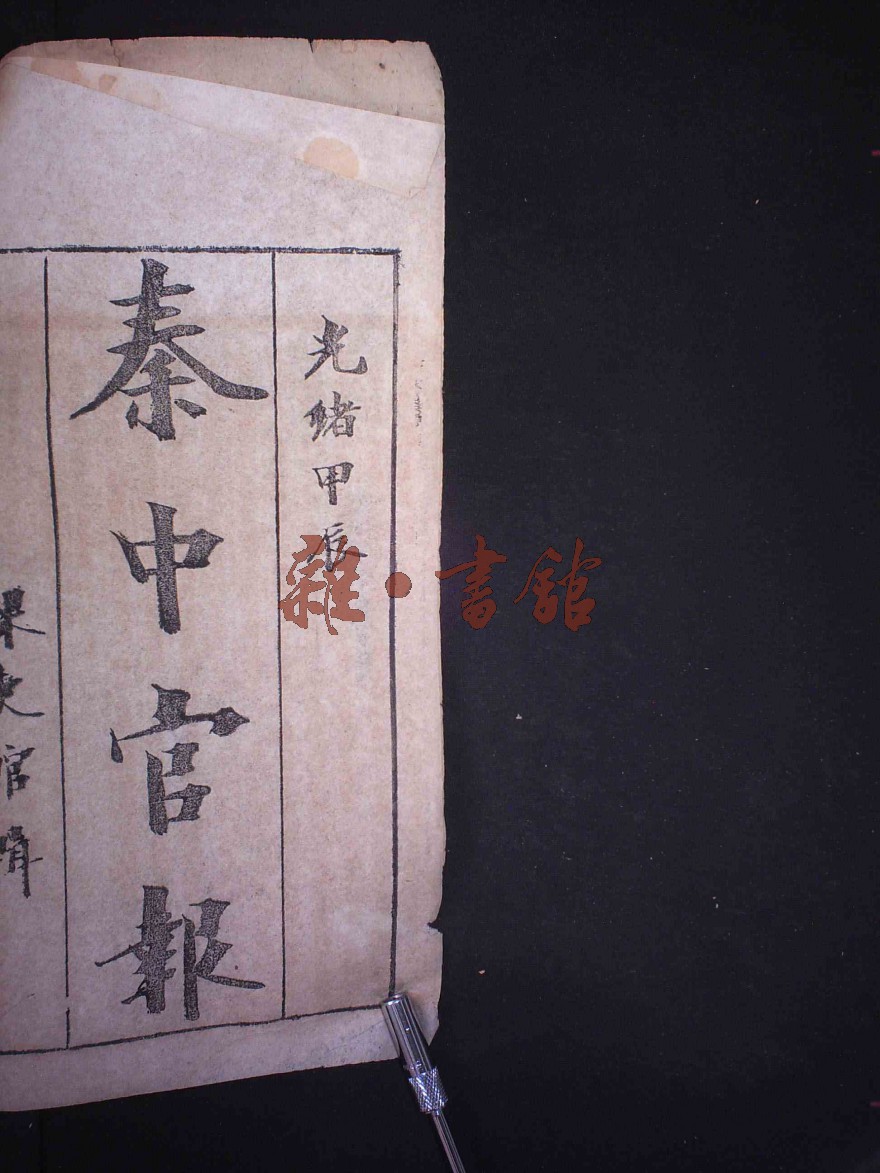 光緒甲辰
秦中官報
雜·書館